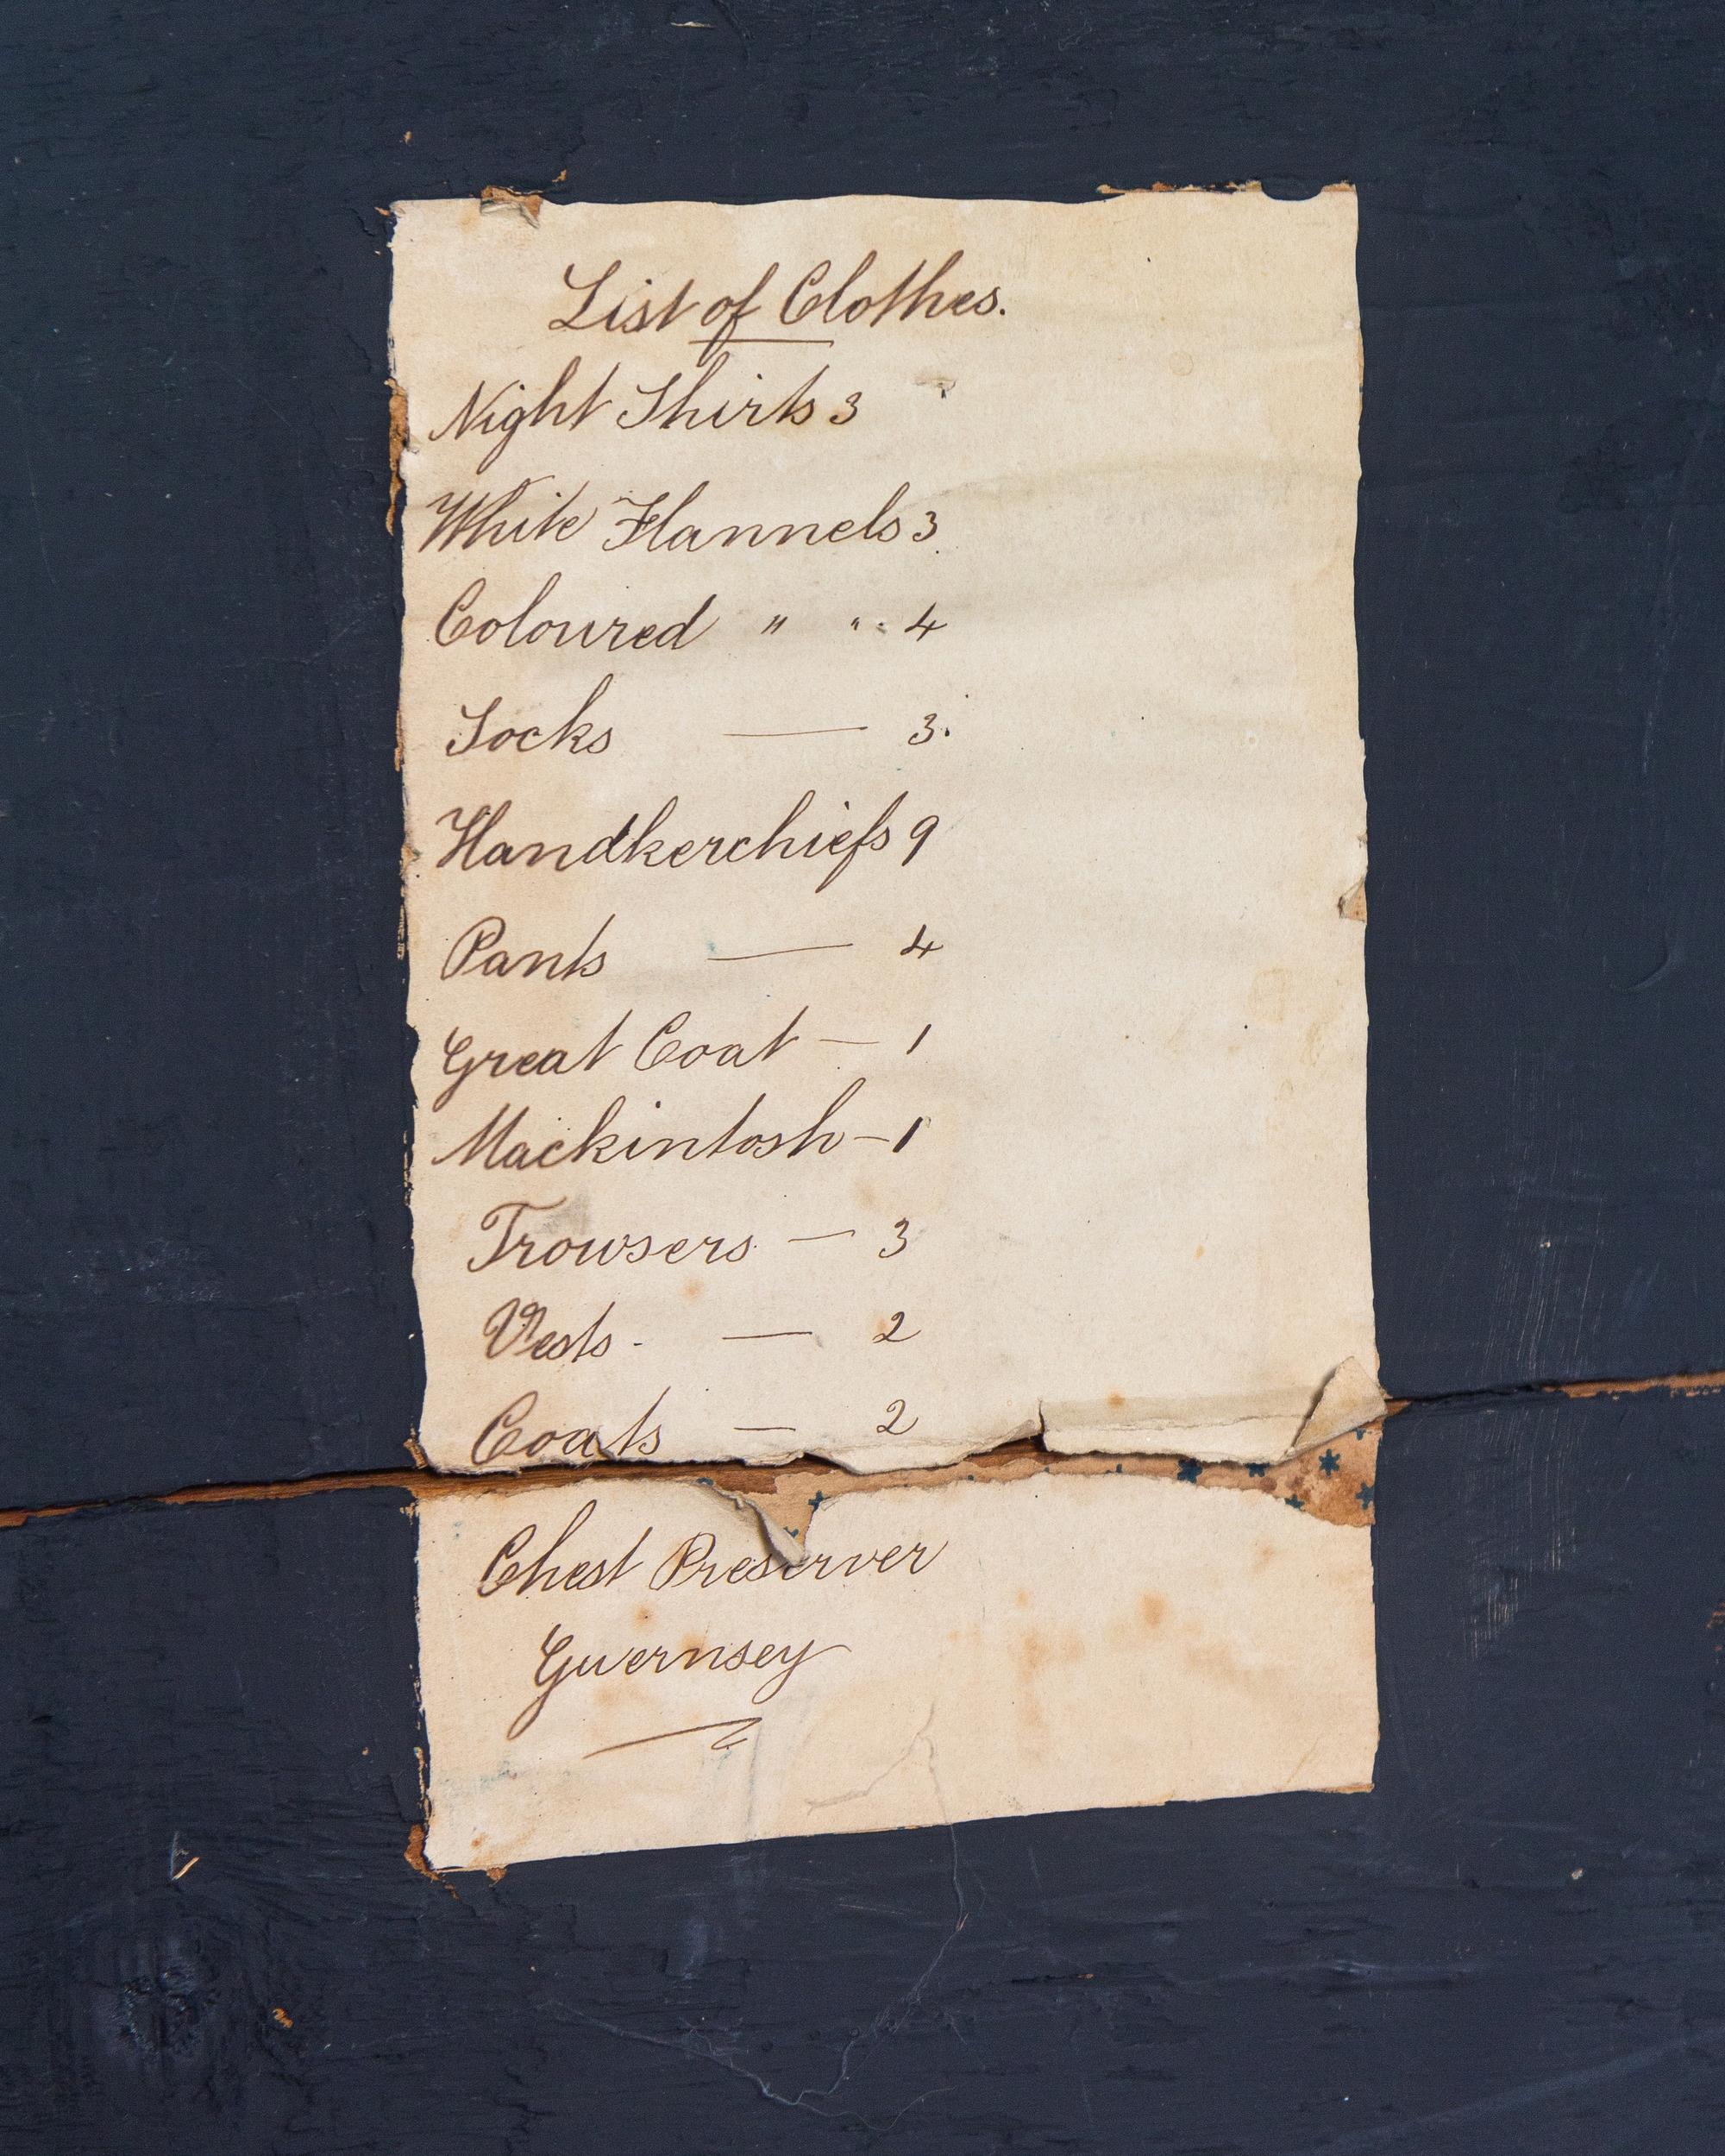 List of Clothes.
Night Shirts 3
White Flannels 3
Coloured " " 4
Socks — 3.
Handkerchiefs 9
Pants — 4
Great Coat — 1
Mackintosh — 1
Trowsers — 3
Vests - — 2
Coats — 2
Chest Preserver
Guernsey